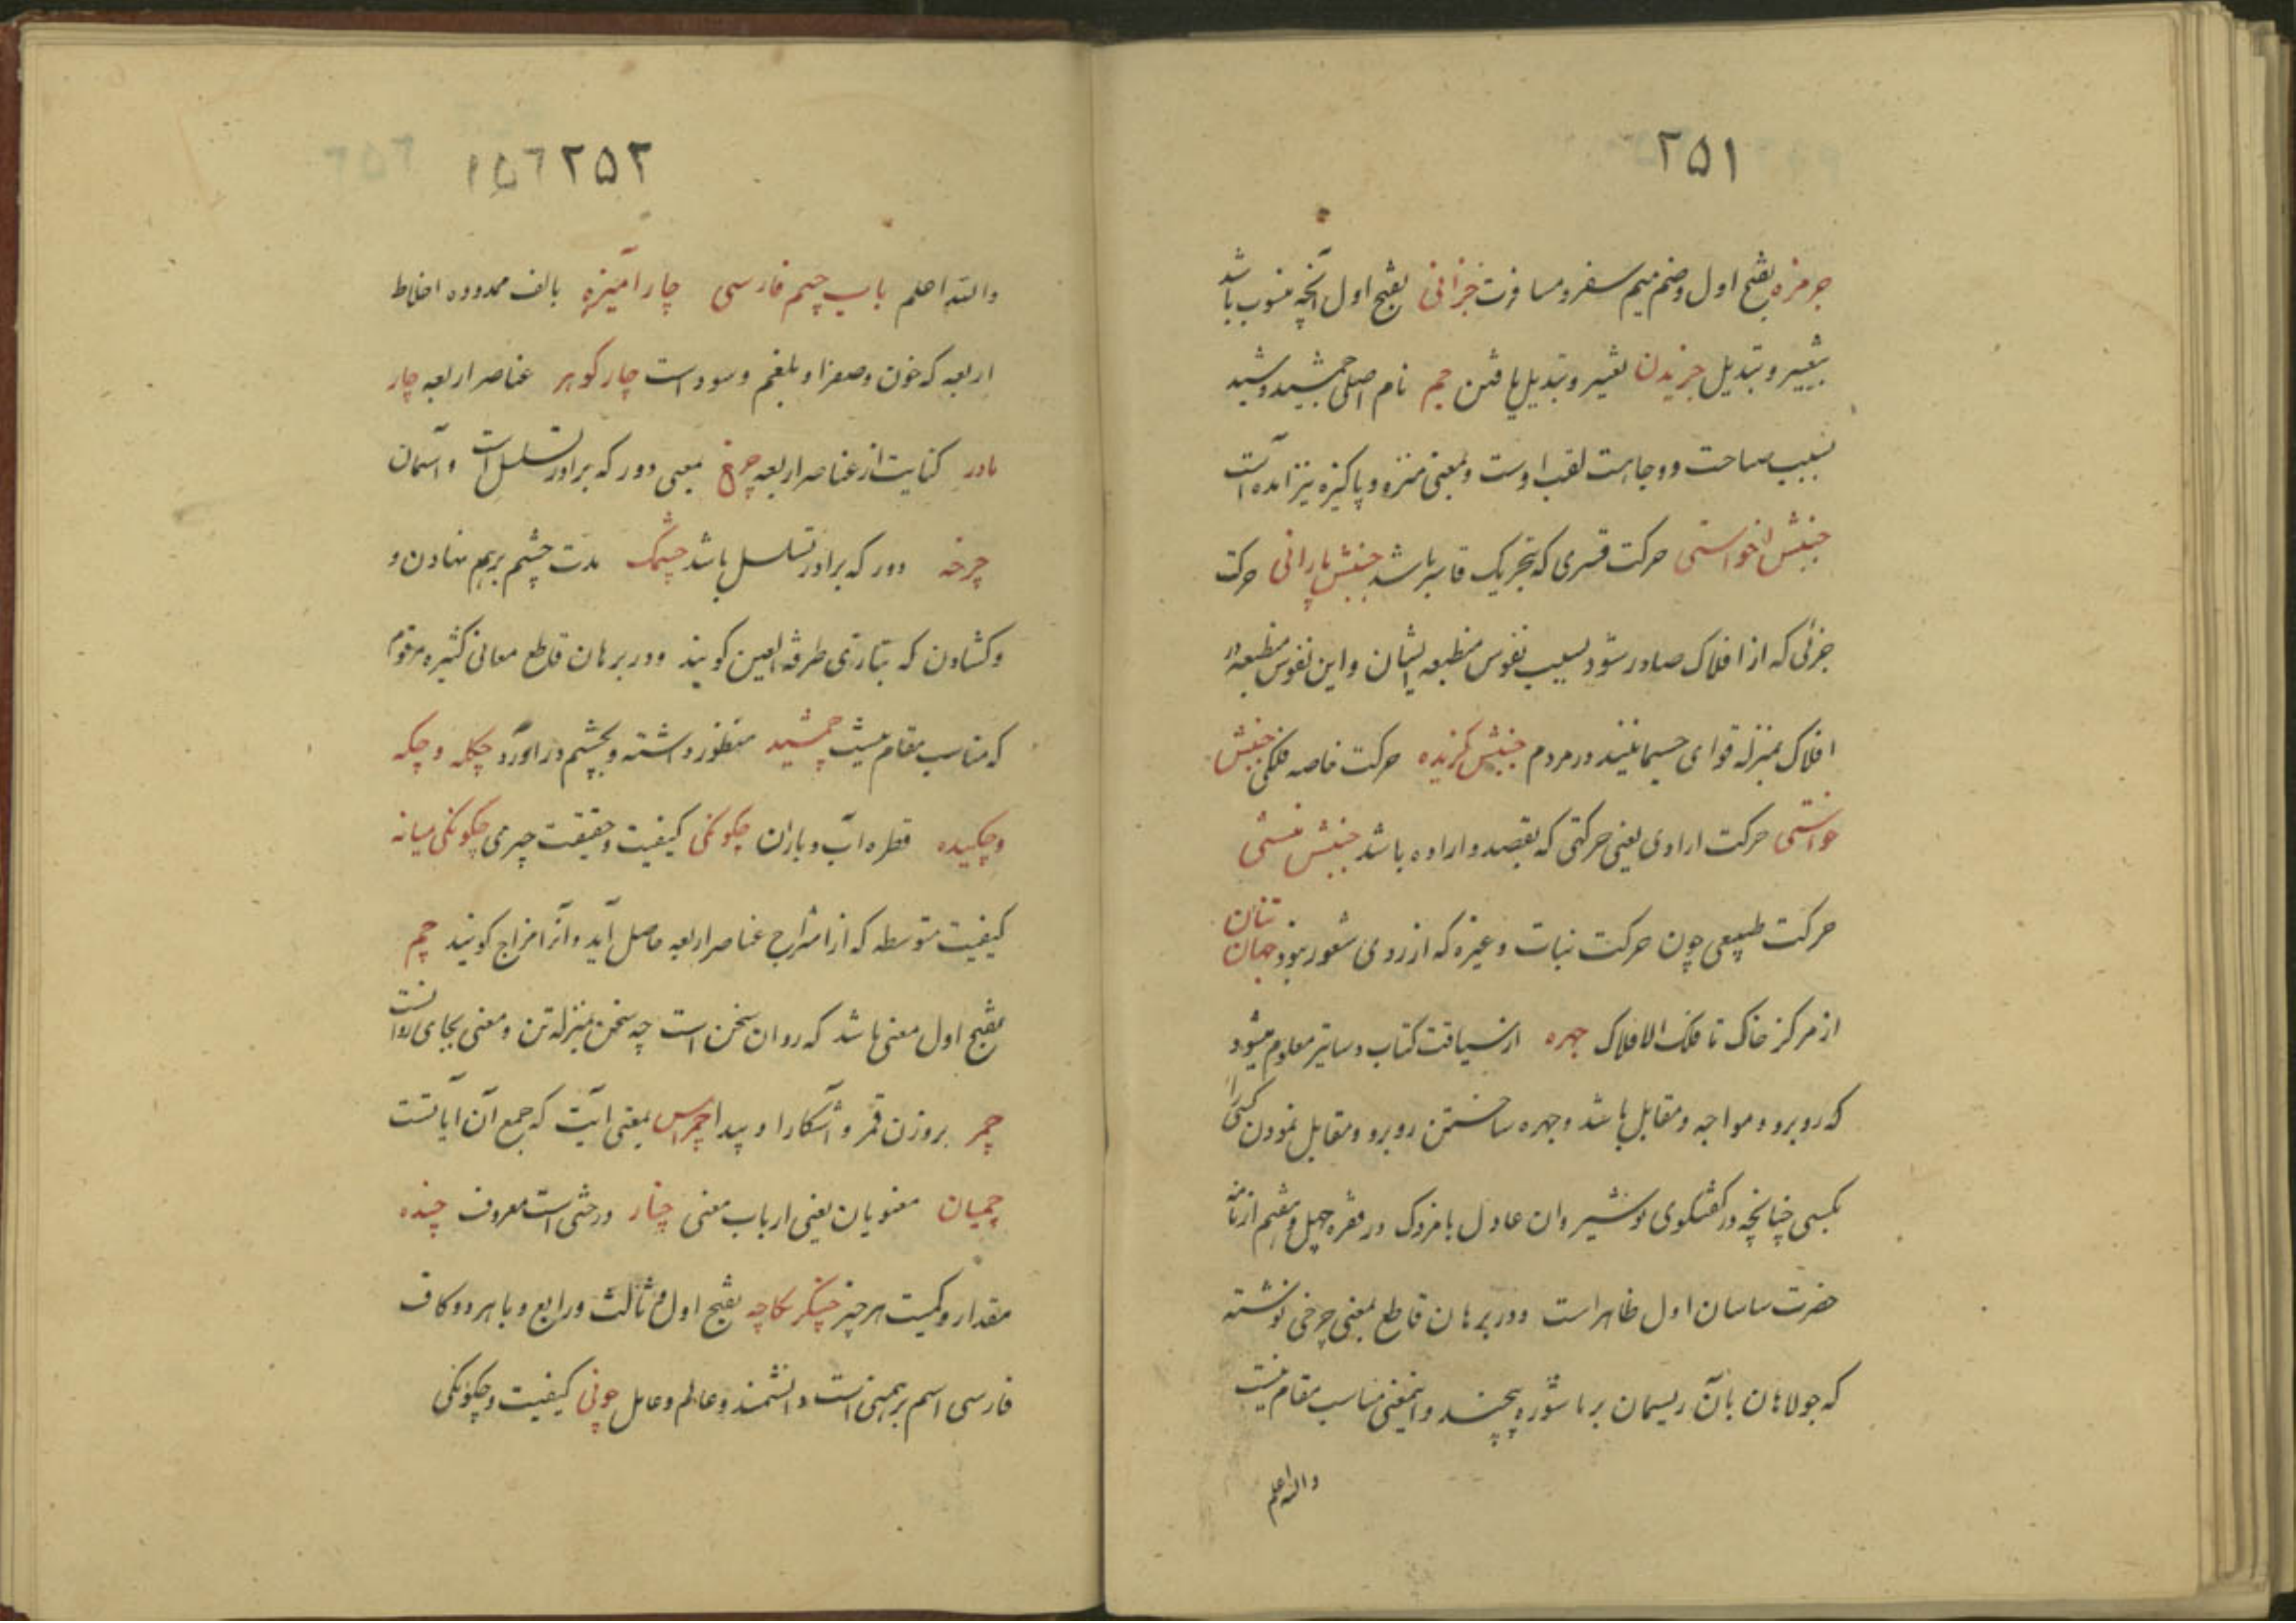 ۲۵۱
جرمزه بفتح اول وضم میم سفر و مسافرت جزانی بفتح اول آنچه منسوب باشد
بتغییر و تبدیل جزیدن تغییر و تبدیل یافتن جم نام اصلی جمشید و شید
بسبب صباحت و وجاهت لقب اوست و بمعنی منزه و پاکیزه نیز آمده است
جنبش ناخواستی حرکت قسری که بتحریک قاسر باشد جنبش پارانی حرکت
جزئی که از افلاک صادر شود بسبب نفوس منطبعه ایشان و این نفوس منطبعه در
افلاک بمنزله قوای جسمانیند در مردم جنبش گزیده حرکت خاصه فلکی جنبش
خواستی حرکت ارادی یعنی حرکتی که بقصد و اراده باشد جنبش منشی
حرکت طبیعی چون حرکت نبات و غیره که از روی شعور نبود جهان تنان
از مرکز خاک تا فلک الافلاک جهره از سیاقت کتاب دساتیر معلوم میشود
که روبرو و مواجه و مقابل باشد و جهره ساختن روبرو و مقابل نمودن کسی را
بکسی چنانچه در گفتگوی نوشیروان عادل با مزدک در فقره چهل و هفتم از نامه
حضرت ساسان اول ظاهر است و در برهان قاطع بمعنی چرخی نوشته
که جولاهان بآن ریسمان بر ماشوره پیچند و اینمعنی مناسب مقام نیست
والله اعلم
۲۵۲ ۱۵۶
والله اعلم باب جیم فارسی چار آمیزه بالف ممدوده اخلاط
اربعه که خون و صفرا و بلغم و سوداست چار گوهر عناصر اربعه چار
مادر کنایت از عناصر اربعه چرخ بمعنی دور که برادر تسلسل است و آسمان
چرخه دور که برادر تسلسل باشد چشمک مدت چشم برهم نهادن و
وکشادن که بتازی طرفة العین کویند و در برهان قاطع معانی کثیره مرقوم
که مناسب مقام نیست چمشید منظور داشته و بچشم در آورد چکله و چکه
و چکیده قطره آب و باران چگونگی کیفیت و حقیقت چیزی چگونگی میانه
کیفیت متوسطه که از امتزاج عناصر اربعه حاصل آید و آنرا مزاج کویند چم
بفتح اول معنی باشد که روان سخن است چه سخن بمنزله تن و معنی بجای روانست
چمر بروزن قمر و آشکارا و پیدا چمراس بمعنی آیت که جمع آن آیاتست
چمیان معنویان یعنی ارباب معنی چنار درختی است معروف چنده
مقدار و کمیت هر چیز چنگرنگاچه بفتح اول و ثالث و رابع و با هر دو کاف
فارسی اسم برهمنی است دانشمند و عالم و عامل چونی کیفیت و چگونگی